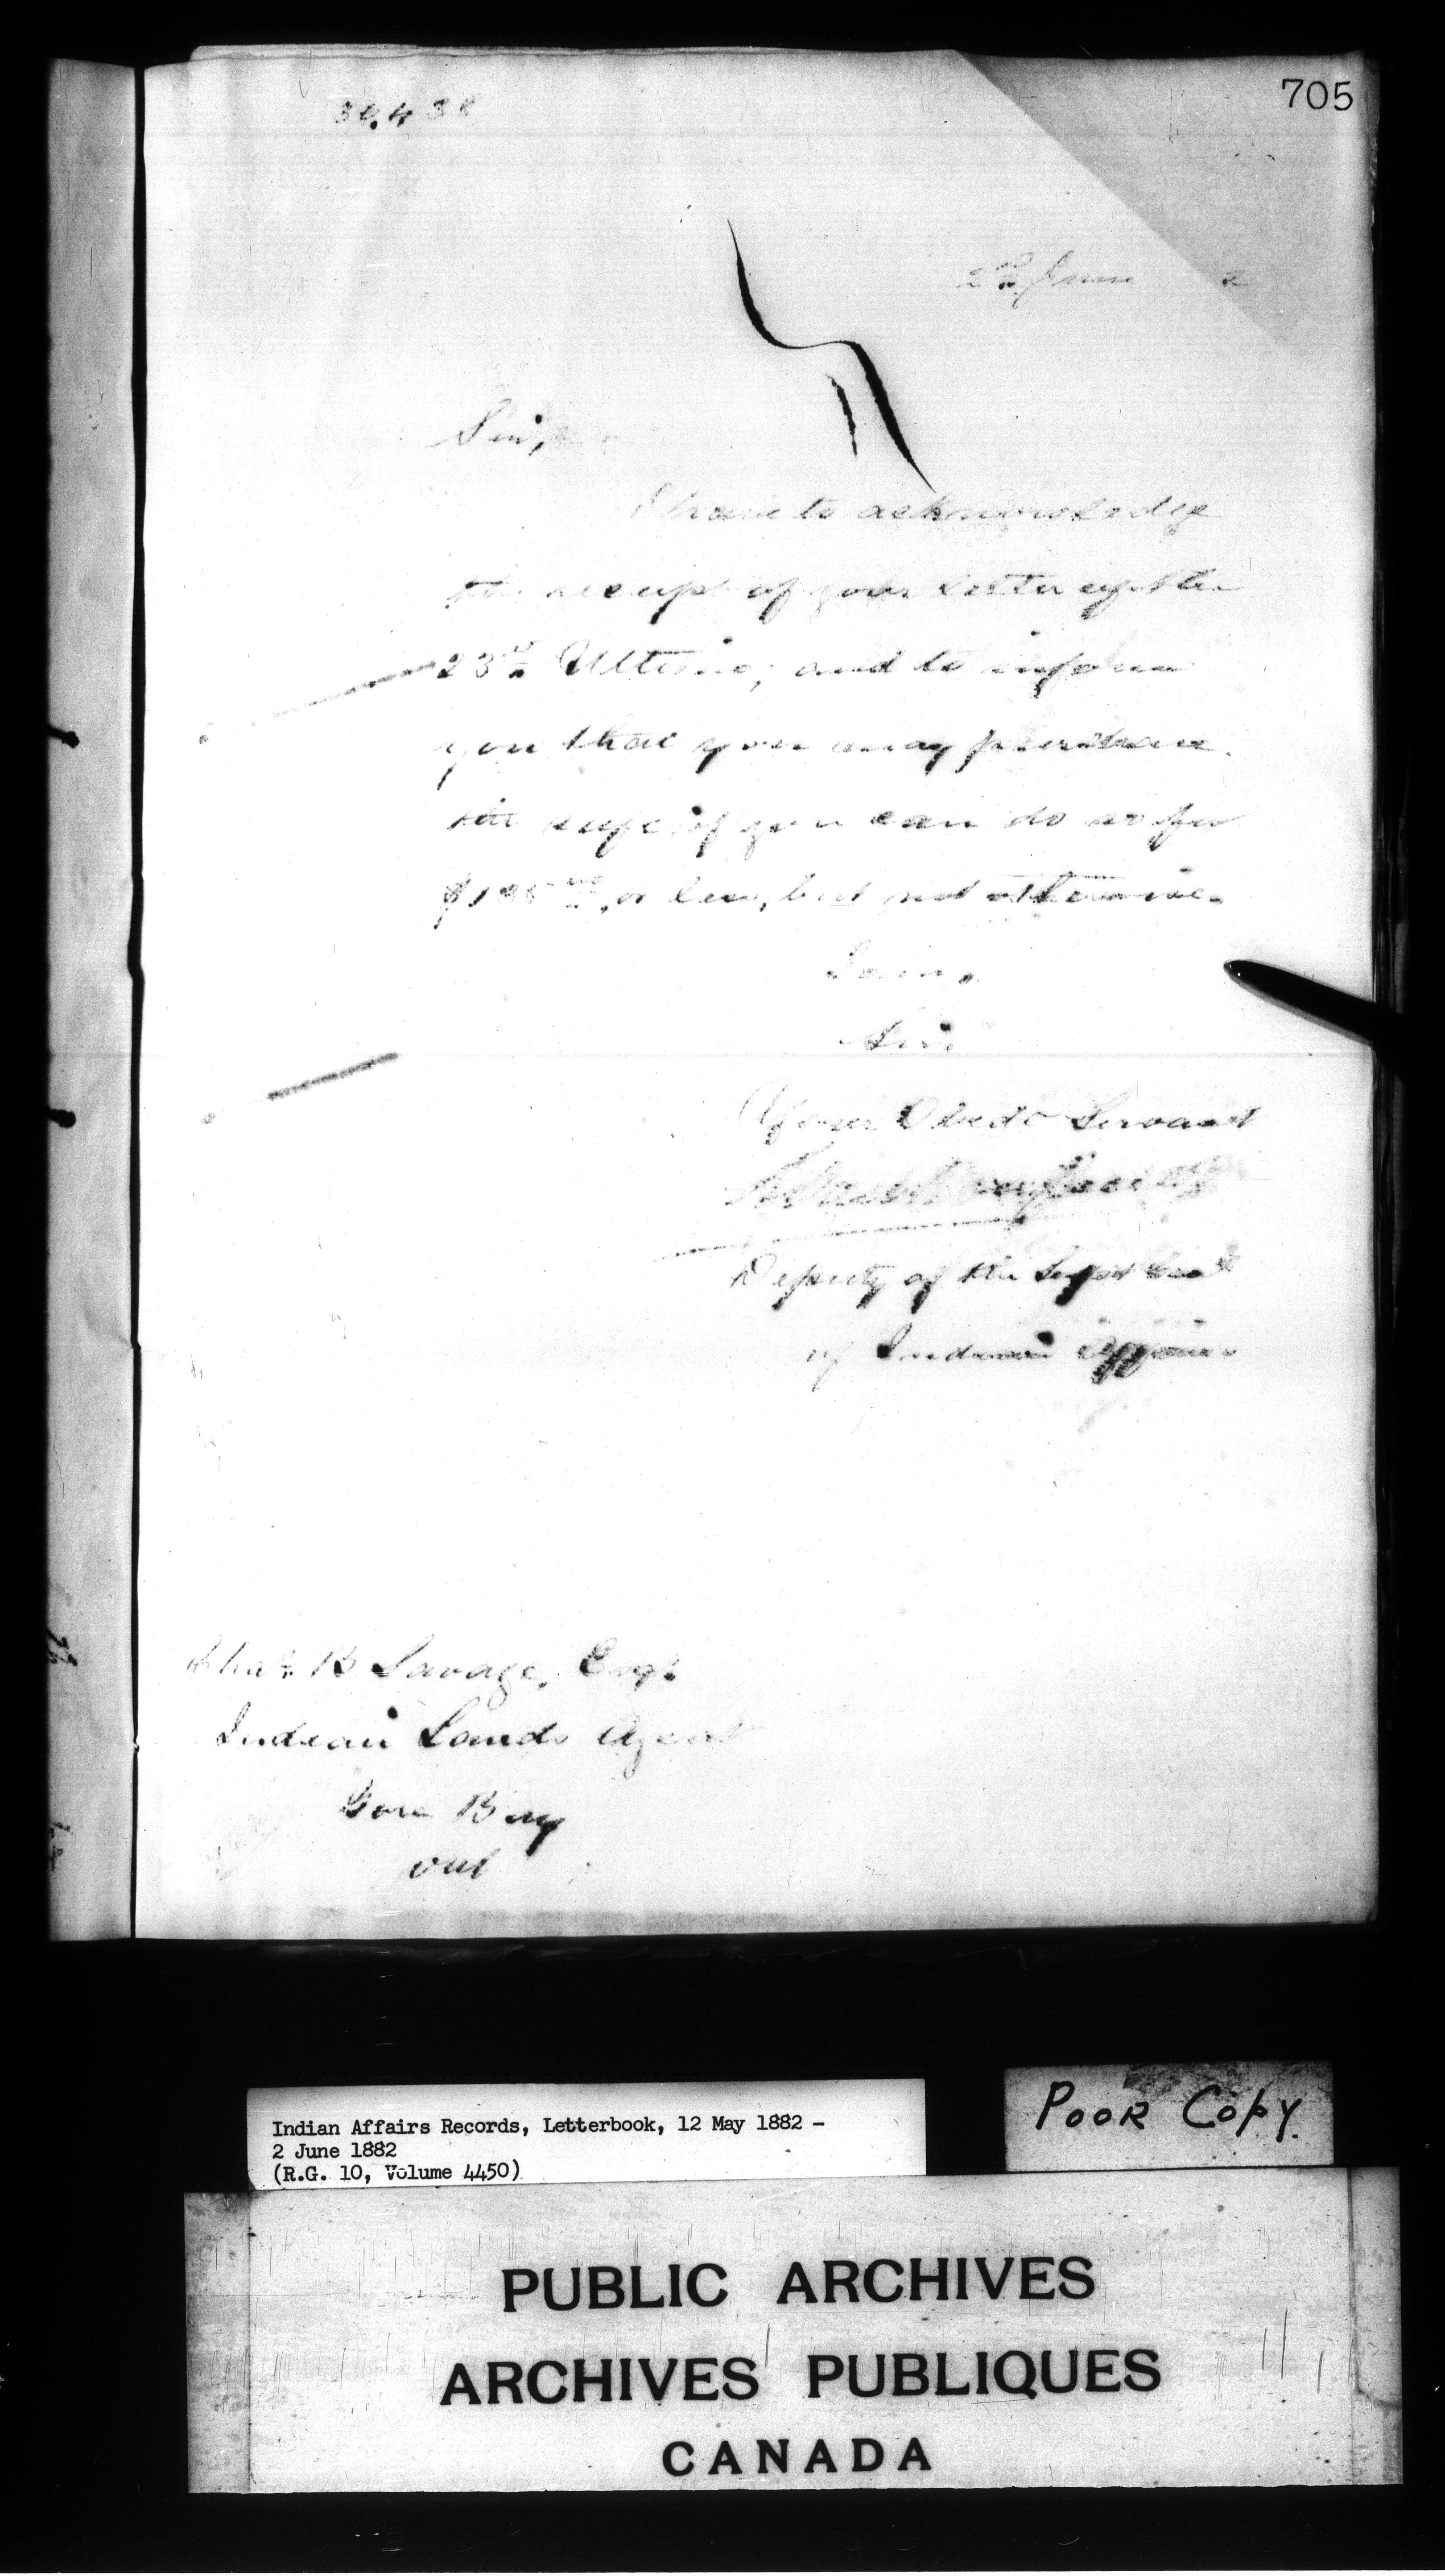 705
2nd June 2
Sir,
I have to acknowledge
the receipt of your letter of the
23rd Ultimo, and to inform
you that you may purchase
the safe if you can do so for
or less, but not otherwise.
I am,
Sir,
Your Obedt Servant
Deputy of the Supt Genl
of Indian Affairs
Chas. B Savage, Esqr.
Indian Lands Agent
Gore Bay
Ont
Indian Affairs Records, Letterbook, 12 May 1882 -
2 June 1882
(R.G. 10, Volume 4450)
POOR COPY.
PUBLIC ARCHIVES
ARCHIVES PUBLIQUES
CANADA